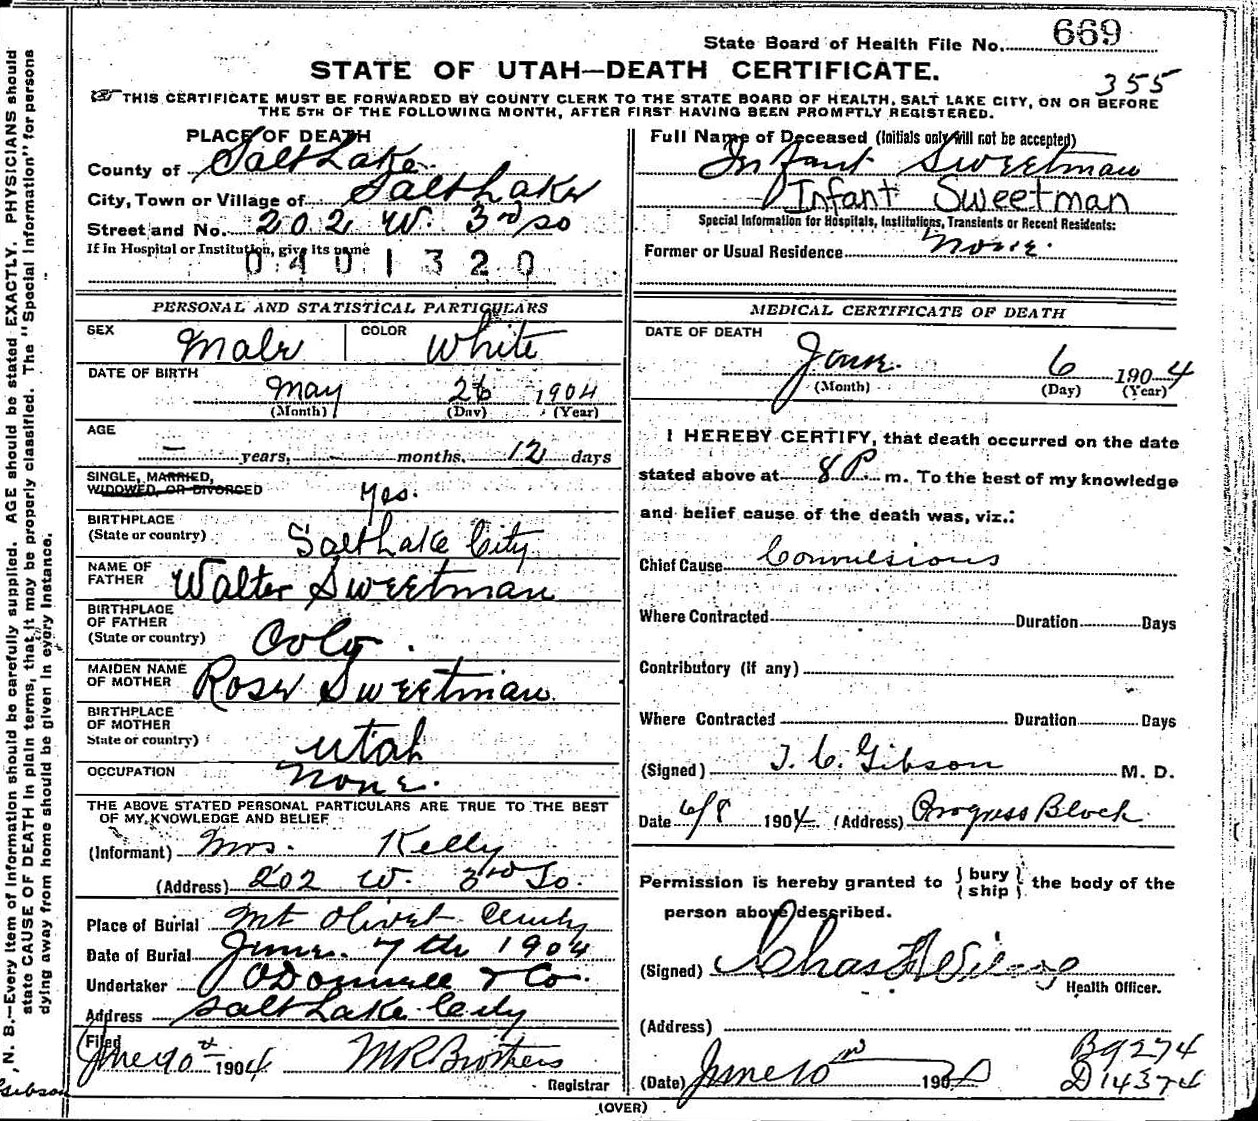 State Board of Health File No. 669
STATE OF UTAH—DEATH CERTIFICATE.
355
THIS CERTIFICATE MUST BE FORWARDED BY COUNTY CLERK TO THE STATE BOARD OF HEALTH, SALT LAKE CITY, ON OR BEFORE
THE 5TH OF THE FOLLOWING MONTH, AFTER FIRST HAVING BEEN PROMPTLY REGISTERED.
PLACE OF DEATH
County of Salt Lake
City, Town or Village of Salt Lake
Street and No. 202 W. 3rd So
If in Hospital or Institution, give its name
0401320
Full Name of Deceased (Initials only will not be accepted)
Infant Sweetman
Infant Sweetman
Special Information for Hospitals, Institutions, Transients or Recent Residents:
Former or Usual Residence None.
PERSONAL AND STATISTICAL PARTICULARS
SEX Male COLOR White
DATE OF BIRTH
May 26 1904
(Month) (Day) (Year)
AGE
— years, - months, 12 days
SINGLE, MARRIED,
WIDOWED, OR DIVORCED yes.
BIRTHPLACE
(State or country) Salt Lake City
NAME OF
FATHER Walter Sweetman
BIRTHPLACE
OF FATHER
(State or country) Colo.
MAIDEN NAME
OF MOTHER Rose Sweetman
BIRTHPLACE
OF MOTHER
State or country) Utah
OCCUPATION None.
THE ABOVE STATED PERSONAL PARTICULARS ARE TRUE TO THE BEST
OF MY KNOWLEDGE AND BELIEF
(Informant) Mrs. Kelly
(Address) 202 W. 3rd So.
Place of Burial Mt Olivet Cemty
Date of Burial June 7th 1904
Undertaker O'Donnell & Co.
Address Salt Lake City
Filed
June 10th 1904 M R Brothers
Registrar
MEDICAL CERTIFICATE OF DEATH
DATE OF DEATH
June 6 1904
(Month) (Day) (Year)
I HEREBY CERTIFY, that death occurred on the date
stated above at 8 P. m. To the best of my knowledge
and belief cause of the death was, viz.:
Chief Cause Convulsions
Where Contracted Duration Days
Contributory (if any)
Where Contracted Duration Days
(Signed) T. C. Gibson M. D.
Date 6/8 1904. (Address) Progress Block
Permission is hereby granted to { bury } the body of the
{ ship }
person above described.
(Signed) Chas
Health Officer.
(Address)
(Date) June 10th 190
B9274
D14374
(OVER)
N. B.—Every item of information should be carefully supplied. AGE should be stated EXACTLY. PHYSICIANS should
state CAUSE OF DEATH in plain terms, that it may be properly classified. The "Special Information" for persons
dying away from home should be given in every instance.
Gibson